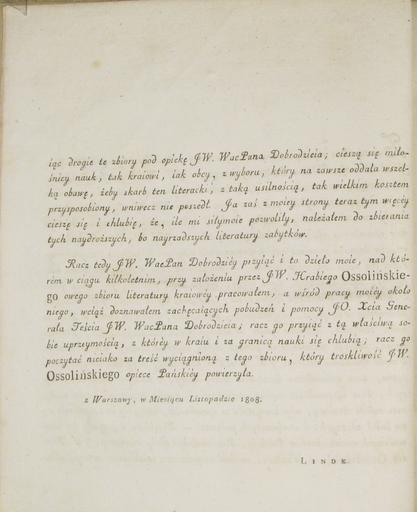 iąc drogie te zbiory pod opiekę JW. WacPana Dobrodzieia; cieszą się miło-
śnicy nauk, tak kraiowi, iak obcy, z wyboru, który na zawsze oddala wszel-
ką obawę, żeby skarb ten literacki, z taką usilnością, tak wielkim kosztem
przysposobiony, wniwecz nie poszedł. Ja zaś z moiey strony teraz tym więcéy
cieszę się i chlubię, że, ile mi siły moie pozwoliły, należałem do zbierania
tych naydroższych, bo nayrzadszych literatury zabytków.
Racz tedy JW. WacPan Dobrodziéy przyiąć i to dzieło moie, nad któ-
rém w ciągu kilkoletnim, przy założeniu przez JW. Hrabiego Ossolińskie-
go owego zbioru literatury kraiowéy pracowałem, a wśród pracy moiéy około
niego, wciąż doznawałem zachęcaiących pobudzeń i pomocy JO. Xcia Gene-
rała Teścia JW. WacPana Dobrodzieia; racz go przyiąć z tą właściwą so-
bie uprzeymością, z któréy w kraiu i za granicą nauki się chlubią; racz go
poczytać nieiako za treść wyciągnioną z tego zbioru, który troskliwość JW.
Ossolińskiego opiece Pańskiéy powierzyła.
z Warszawy, w Miesiącu Listopadzie 1808.
LINDE.